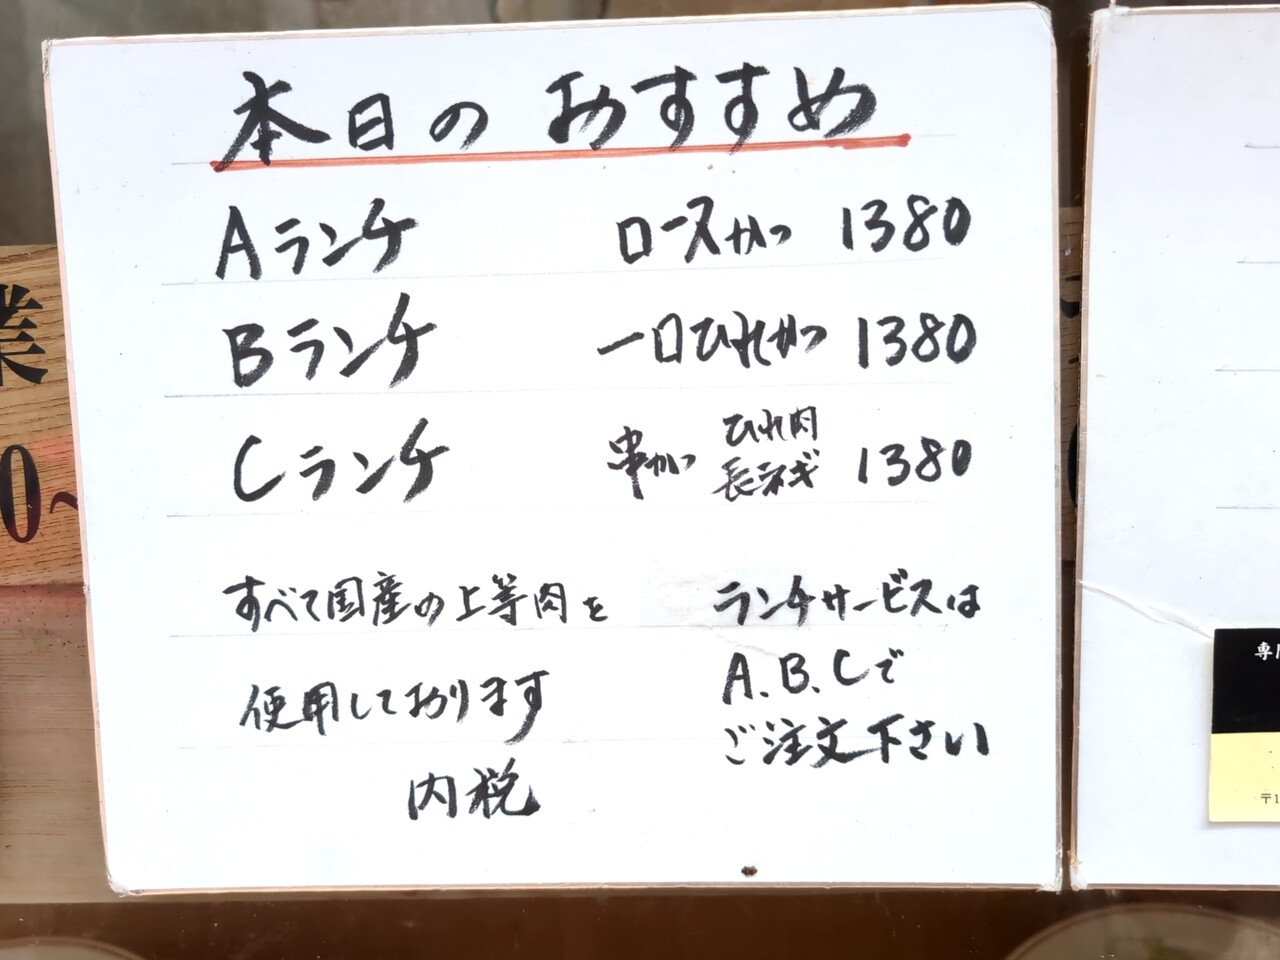 本日のおすすめ
Aランチ ロースかつ 1380
Bランチ 一口ひれかつ 1380
Cランチ 串かつ ひれ肉 長ネギ 1380
すべて国産の上等肉を
使用しております
内税
ランチサービスは
A.B.Cで
ご注文下さい
業
0~
専
〒1